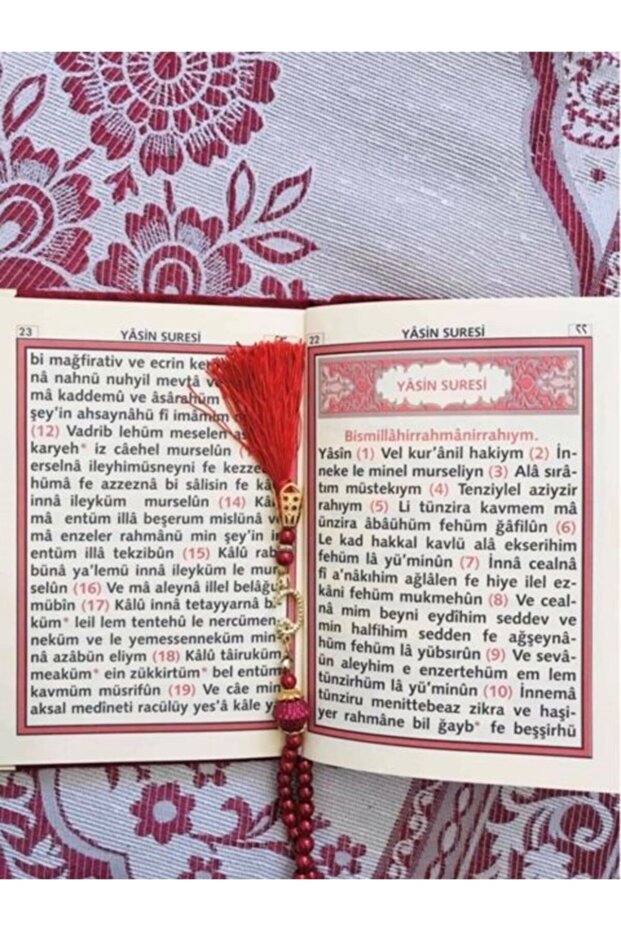 22
YÂSİN SURESİ
٢٢
YÂSİN SURESİ
Bismillâhirrahmânirrahıym.
Yâsîn (1) Vel kur'ânil hakiym (2) İn-
neke le minel murseliyn (3) Alâ sırâ-
tım müstekıym (4) Tenziylel aziyzir
rahıym (5) Li tünzira kavmem mâ
ünzira âbâühüm fehüm ğâfilûn (6)
Le kad hakkal kavlü alâ ekserihim
fehüm lâ yü'minûn (7) İnnâ cealnâ
fî a'nâkıhim ağlâlen fe hiye ilel ez-
kâni fehüm mukmehûn (8) Ve ceal-
nâ mim beyni eydîhim seddev ve
min halfihim sedden fe ağşeynâ-
hüm fehüm lâ yübsırûn (9) Ve sevâ-
ün aleyhim e enzertehüm em lem
tünzirhüm lâ yü'minûn (10) İnnemâ
tünziru menittebeaz zikra ve haşi-
yer rahmâne bil ğayb* fe beşşirhü
23
YÂSİN SURESİ
bi mağfirativ ve ecrin
nâ nahnü nuhyil mevtâ
mâ kaddemû ve âsârahüm
şey'in ahsaynâhü fî imâmim
(12) Vadrib lehüm meselen
karyeh* iz câehel murselûn
erselnâ ileyhimüsneyni fe
hümâ fe azzeznâ bi sâlisin fe
innâ ileyküm murselûn (14)
mâ entüm illâ beşerum mislünâ
mâ enzeler rahmânü min şey'in
entüm illâ tekzibûn (15) Kâlû
bünâ ya'lemü innâ ileyküm le
selûn (16) Ve mâ aleynâ illel
mübîn (17) Kâlû innâ tetayyarnâ
küm* leil lem tentehû le
neküm ve le yemessenneküm
nâ azâbün eliym (18) Kâlû tâiruküm
meaküm* ein zükkirtüm* bel entüm
kavmüm müsrifûn (19) Ve câe min
aksal medîneti racülüy yes'â kâle